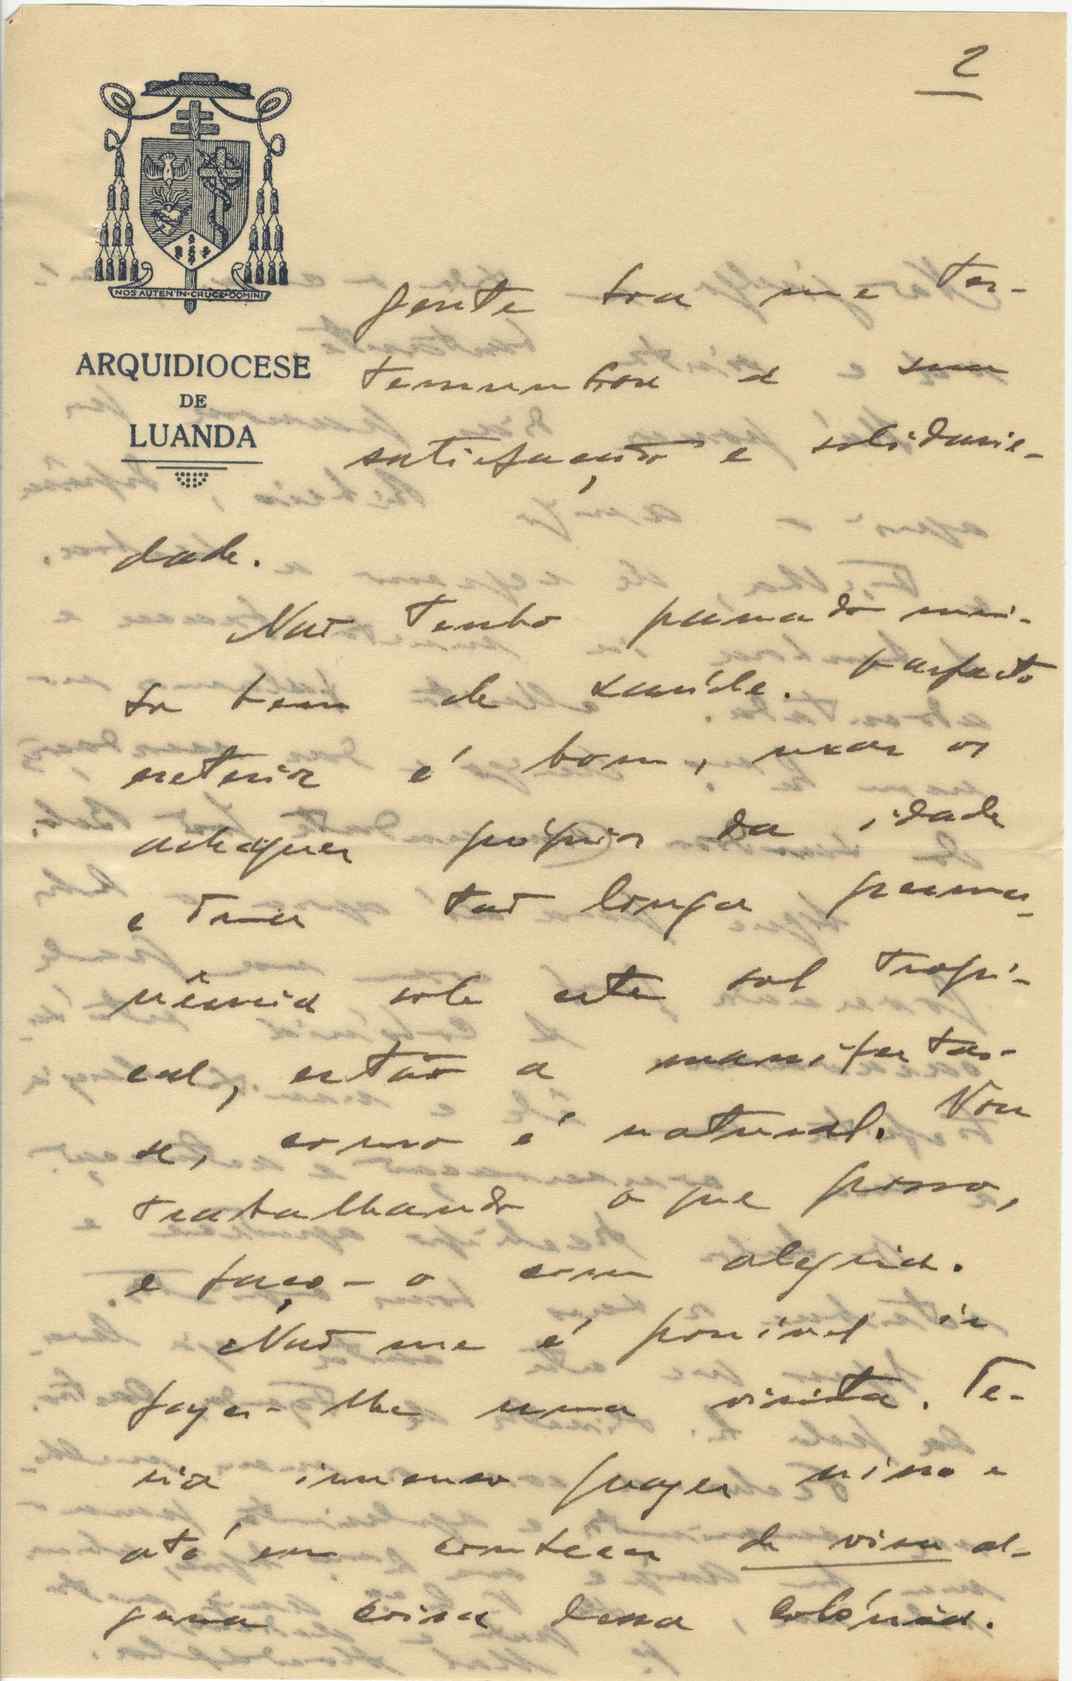 2
NOS AUTEN IN CRUCE DOMINI
ARQUIDIOCESE
DE
LUANDA
gente boa me tes-
temunhou a sua
satisfação e solidarie-
dade.
Não tenho passado mui-
to bem de saúde. O aspecto
exterior é bom, mas os
achaques próprios da idade
e duma tão longa perma-
nência sob este sol tropi-
cal, estão a manifestar-
se, como é natural. Vou
trabalhando o que posso,
e faço-o com alegria.
Não me é possível ir
fazer-lhe uma visita. Te-
ria imenso prazer nisso e
até em conhecer de visu al-
guma coisa dessa colónia.